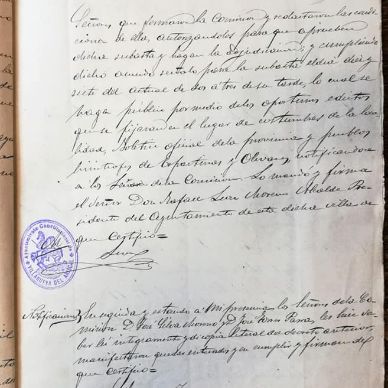 Señores que formaron la Comision y redactaron las condi-
ciones de ella, autorizandoles para que aprueben
dicha subasta y hagan la adjudicacion; y cumpliendo
dicho acuerdo señalo para la subasta el dia diez y
siete del actual de dos a tres de su tarde, lo cual se
haga publico por medio de los oportunos edictos
que se fijaran en el lugar de costumbre de la loca-
lidad, Boletin oficial de la provincia y pueblos
limitrofes de Espartinas y Olivares, notificandolo
a los Señores de la Comision. Lo mando y firma
el Señor Don Rafael Moreno Alcalde Pre-
sidente del Ayuntamiento de esta dicha villa de
que certifico=
Notificacion
En seguida y estando a mi presencia los Señores de la Co-
mision D. Jose Moreno y D. Jose les
integramente y di copia literal del decreto anterior,
manifestaron quedar enterados y en cumplir y firman de
que certifico=